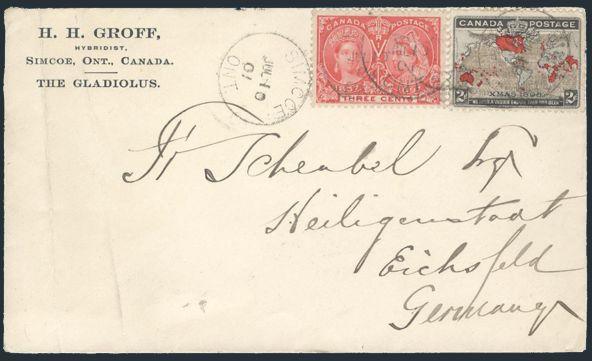 H. H. GROFF,
HYBRIDIST,
SIMCOE, ONT., CANADA.
THE GLADIOLUS.
SIMCOE
JUL 10
01
ONT
CANADA POSTAGE
THREE CENTS
CANADA POSTAGE
XMAS 1898
2
WE HOLD A VASTER EMPIRE THAN HAS BEEN
Fr Scheubel Esq
Heiligenstadt
Eichsfeld
Germany